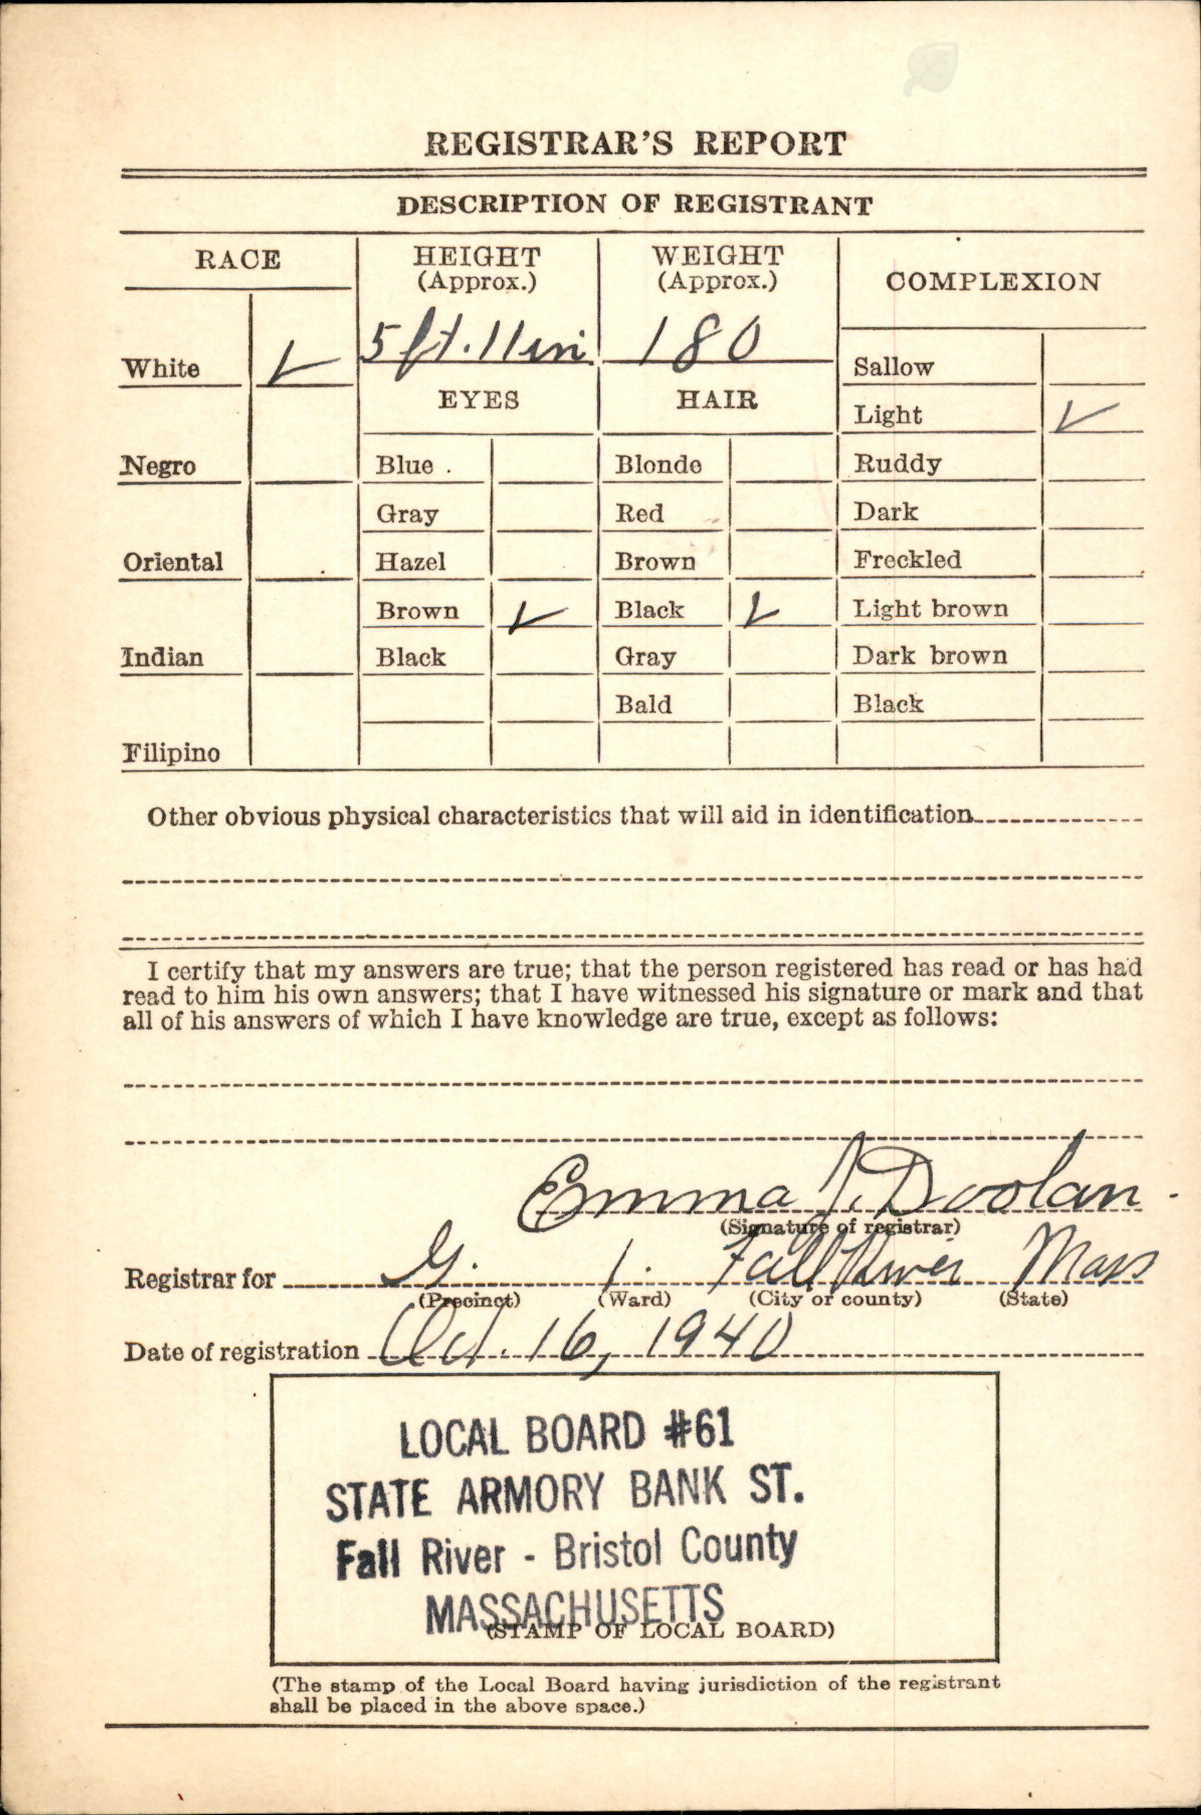 REGISTRAR'S REPORT
DESCRIPTION OF REGISTRANT
RACE
HEIGHT
(Approx.)
WEIGHT
(Approx.)
COMPLEXION
5 ft. 11 in
180
White ✓
EYES
HAIR
Sallow
Light ✓
Negro
Blue
Blonde
Ruddy
Gray
Red
Dark
Oriental
Hazel
Brown
Freckled
Brown ✓
Black ✓
Light brown
Indian
Black
Gray
Dark brown
Bald
Black
Filipino
Other obvious physical characteristics that will aid in identification
I certify that my answers are true; that the person registered has read or has had
read to him his own answers; that I have witnessed his signature or mark and that
all of his answers of which I have knowledge are true, except as follows:
Emma J. Doolan.
(Signature of registrar)
Registrar for G. 1. Fall River Mass
(Precinct) (Ward) (City or county) (State)
Date of registration Oct. 16, 1940
LOCAL BOARD #61
STATE ARMORY BANK ST.
Fall River - Bristol County
MASSACHUSETTS
(STAMP OF LOCAL BOARD)
(The stamp of the Local Board having jurisdiction of the registrant
shall be placed in the above space.)